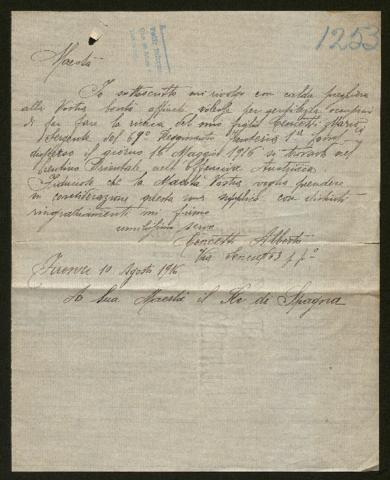 1253
Maestà
Io sottoscritto mi rivolgo con calda preghiera
alla Vostra bontà affinchè volesse per gentilezza occuparsi
di far fare la ricerca del mio figlio Cencetti Mario
Sergente del 69° Reggimento Fanteria 1a
disperso il giorno 16 Maggio 1916 si trovava nel
Trentino Orientale nell'Offensiva Austriaca.
Fiducioso che la Maestà Vostra voglia prendere
in considerazione questa mia supplica con distinti
ringraziamenti mi firmo
umilissimo servo
Cencetti Alberto
Via
Firenze 10 Agosto 1916
A Sua Maestà il Re di Spagna